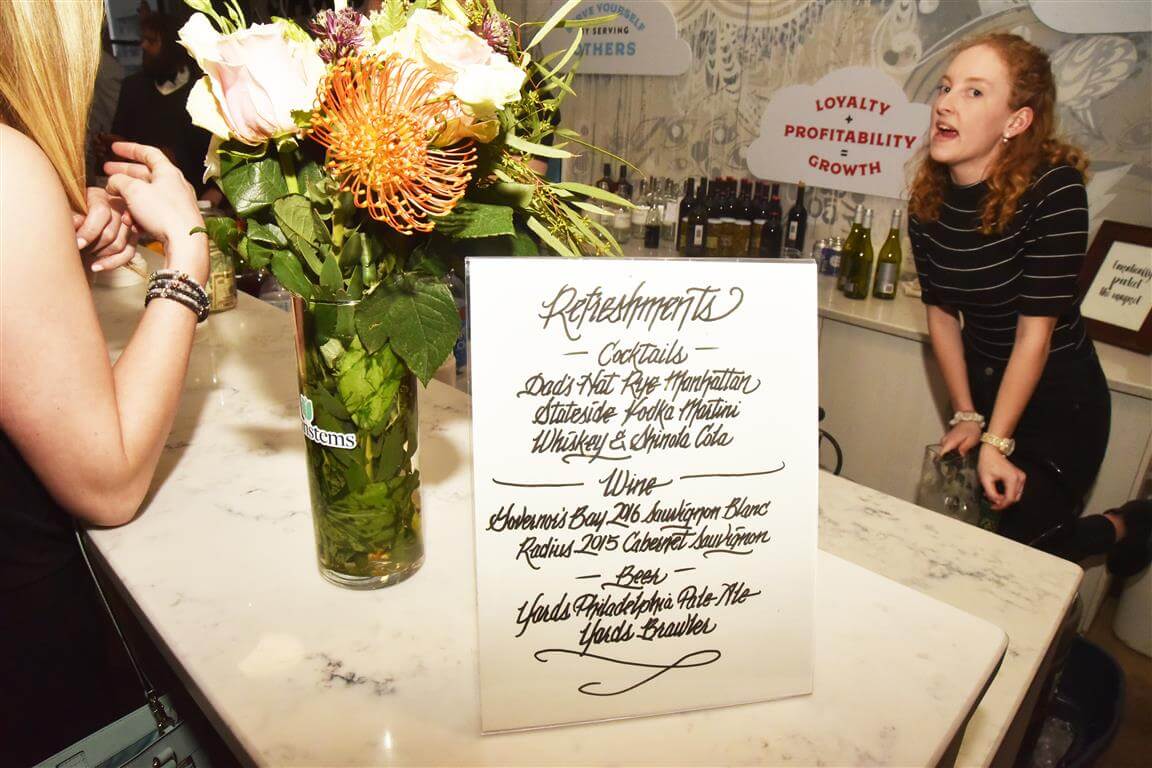 SERVING
OTHERS
LOYALTY
+
PROFITABILITY
=
GROWTH
the magnet
Refreshments
— Cocktails —
Dad's Hat Rye Manhattan
Stateside Vodka Martini
Whiskey & Shinola Cola
Wine
Governor's Bay 2016 Sauvignon Blanc
Radius 2015 Cabernet Sauvignon
— Beer —
Yards Philadelphia Pale Ale
Yards Brawler